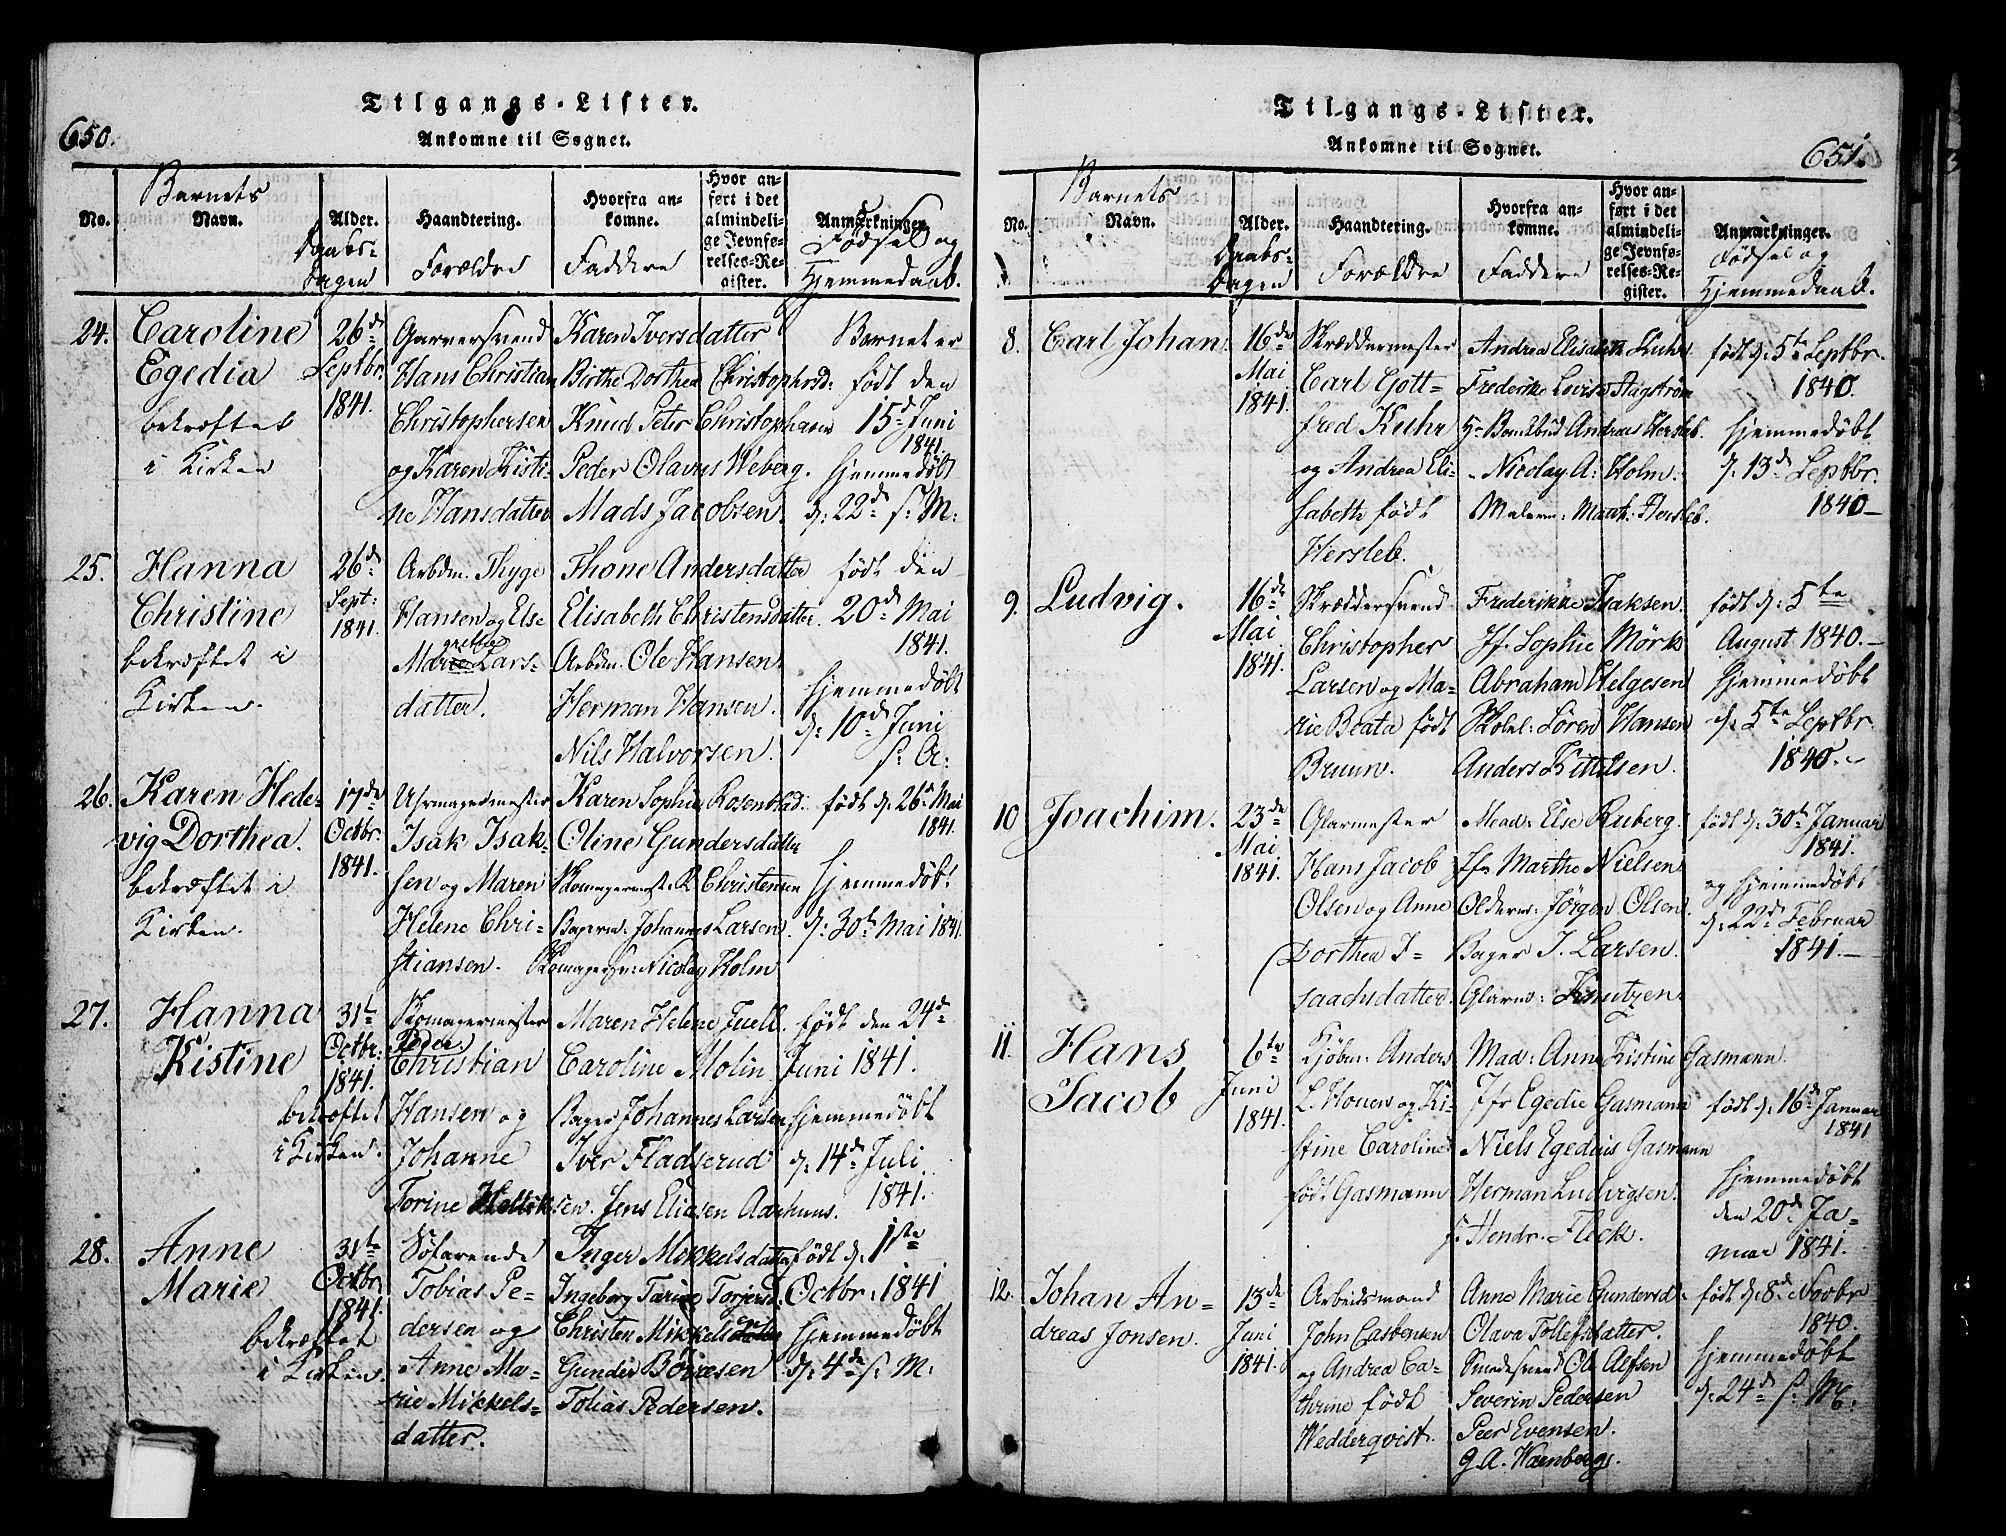 650.
Tilgangs-Lister.
Ankomne til Sognet.
No.
Barnets
Navn.
Alder.
Daabs-
dagen
Haandtering.
Forældre
Hvorfra an-
komne.
Faddere
Hvor an-
ført i det
almindeli-
ge Jevnfø-
relses-Re-
gister.
Anmærkninger.
Fødsel og
Hjemmedaab.
24.
Caroline
Egedia
bekræftet
i Kirken
26de
Septbr.
1841.
Garversvend
Hans Christian
Christophersen
og Karen Kisti-
ne Hansdatter
Karen Iversdatter
Birthe Dorthea Christophrsd:
Knud Peter Christophersen
Peder Olavus Weberg.
Mads Jacobsen.
Barnet er
født den
15de Juni
1841.
hjemmedøbt
d: 22de s: M:
25.
Hanna
Christine
bekræftet i
Kirken.
26de
Sept:
1841.
Arbdm. Thyge
Hansen og Else
grethe
Marie Lars-
datter.
Thone Andersdatter
Elisabeth Christensdatter.
Arbdm. Ole Hansen.
Herman Hansen.
Nils Halvorsen.
født den
20de Mai
1841.
hjemmedøbt
d: 10de Juni
s: A:
26.
Karen Hede-
vig Dorthea.
bekræftet i
Kirken.
17de
Octbr.
1841.
Uhrmagermester
Isak Isak-
sen og Maren
Helene Chri-
stiansen.
Karen Sophie Rosenblad.
Oline Gundersdatter
Skomagermester R Christensen
Bagerm: Johannes Larsen.
Skomagersv: Nicolay Holm
født d: 26de Mai
1841.
hjemmedøbt
d: 30te Mai 1841.
27.
Hanna
Kistine
bekræftet
i Kirken.
31te
Octbr:
1841.
Skomagermester
Peder
Christian
Hansen og
Johanne
Torine
Maren Helene Juell.
Caroline Molin
Bager Johannes Larsen
Iver Fladserud
Jens Eliesen Aarhuus.
født den 24de
Juni 1841.
hjemmedøbt
d: 14de Juli
1841.
28.
Anne
Marie
bekræftet
i Kirken.
31te
Octbr
1841.
Søfarende
Tobias Pe-
dersen og
Anne Ma-
rie Mikkels-
datter.
Inger Mikkelsdatter
Ingeborg Tarine Torjersd.
Christen Mikkelsen
Gunder Børresen
Tobias Pedersen.
født d: 1ste
Octbr: 1841
hjemmedøbt
d: 4de s: M:
Tilgangs-Lister.
Ankomne til Sognet.
651.
No.
Barnets
Navn.
Alder.
Daabs-
dagen
Haandtering.
Forældre
Hvorfra an-
komne.
Faddere
Hvor an-
ført i det
almindeli-
ge Jevnfø-
relses-Re-
gister.
Anmærkninger.
Fødsel og
Hjemmedaab.
8.
Carl Johan.
16de
Mai
1841.
Skræddermester
Carl Gott-
fred Kuhr
og Andrea Eli-
sabeth født
Hersleb.
Andrea Elisabeth Kuhr.
Frederikke Lovise Hagstrøm
Hr Bankbud Andreas Hersleb.
Nicolay A: Holm.
Malerm: Hersleb.
født d: 5te Septbr.
1840.
hjemmedøbt
d: 13de Septbr.
1840—
9.
Ludvig.
16de
Mai
1841.
Skræddersvend
Christopher
Larsen og Ma-
rie Beata født
Bruun.
Frederikke Isaksen.
Jfr. Sophie Mörk
Abraham Helgesen
Skolel: Søren Hansen
Anders Kittelsen.
født d: 5te
August 1840.—
hjemmedøbt
d: 5te Septbr.
1840.—
10
Joachim.
23de
Mai
1841.
Glarmester
Hans Jacob
Olsen og Anne
Dorthea I-
saachsdatter.
Mad: Else Ruberg.
Jfr Marthe Nielsen
Olderm: Jörgen Olsen.
Bager J. Larsen.
Glarm: Knutzen.
født d: 30te Januar
1841.
og hjemmedøbt
d: 22de Februar
1841.—
11.
Hans
Jacob
6te
Juni
1841.
Kjøbm: Anders
L. Houen og Ki-
stine Caroline
født Gasmann
Mad: Anne Kistine Gasmann.
Jfr Egedie Gasmann
Niels Egedius Gasmann
Herman Ludvigsen.
s: Hendr. Fleck.
født d: 16de Januar
1841
hjemmedøbt
den 20de Ja-
nuar 1841.
12.
Johan An-
dreas Jonsen.
13de
Juni
1841.
Arbeidsmand
John Casbersen
og Andrea Ca-
thrine født
Wedderqvist.
Anne Marie Gundersd:
Olava Tollefsdatter.
Smedesvend Ole Alfsen
Severin Pedersen
Peer Evensen.
G. A. Warnberg.
født d: 8de Novbr
1840.
hjemmedøbt
d: 24de s: M: